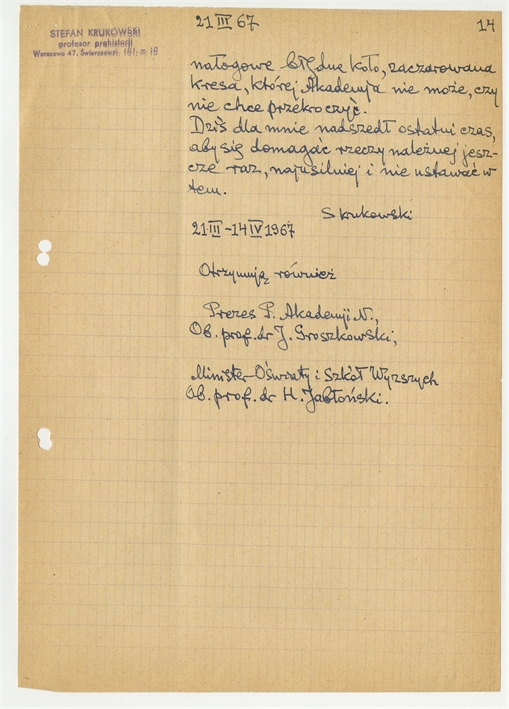 21 III 67
14
STEFAN KRUKOWSKI
profesor prehistorii
Warszawa 47,
nałogowe błędne koło, zaczarowana
kresa, której Akademja nie może, czy
nie chce przekroczyć.
Dziś dla mnie nadszedł ostatni czas,
aby się domagać rzeczy należnej jesz-
cze raz, najusilniej i nie ustawać w
tem.
SKrukowski
21 III – 14 IV 1967
Otrzymują również
Prezes P. Akademji N.,
Ob. prof. dr J. Groszkowski,
Minister Oświaty i Szkół Wyższych
Ob. prof. dr H. Jabłoński.